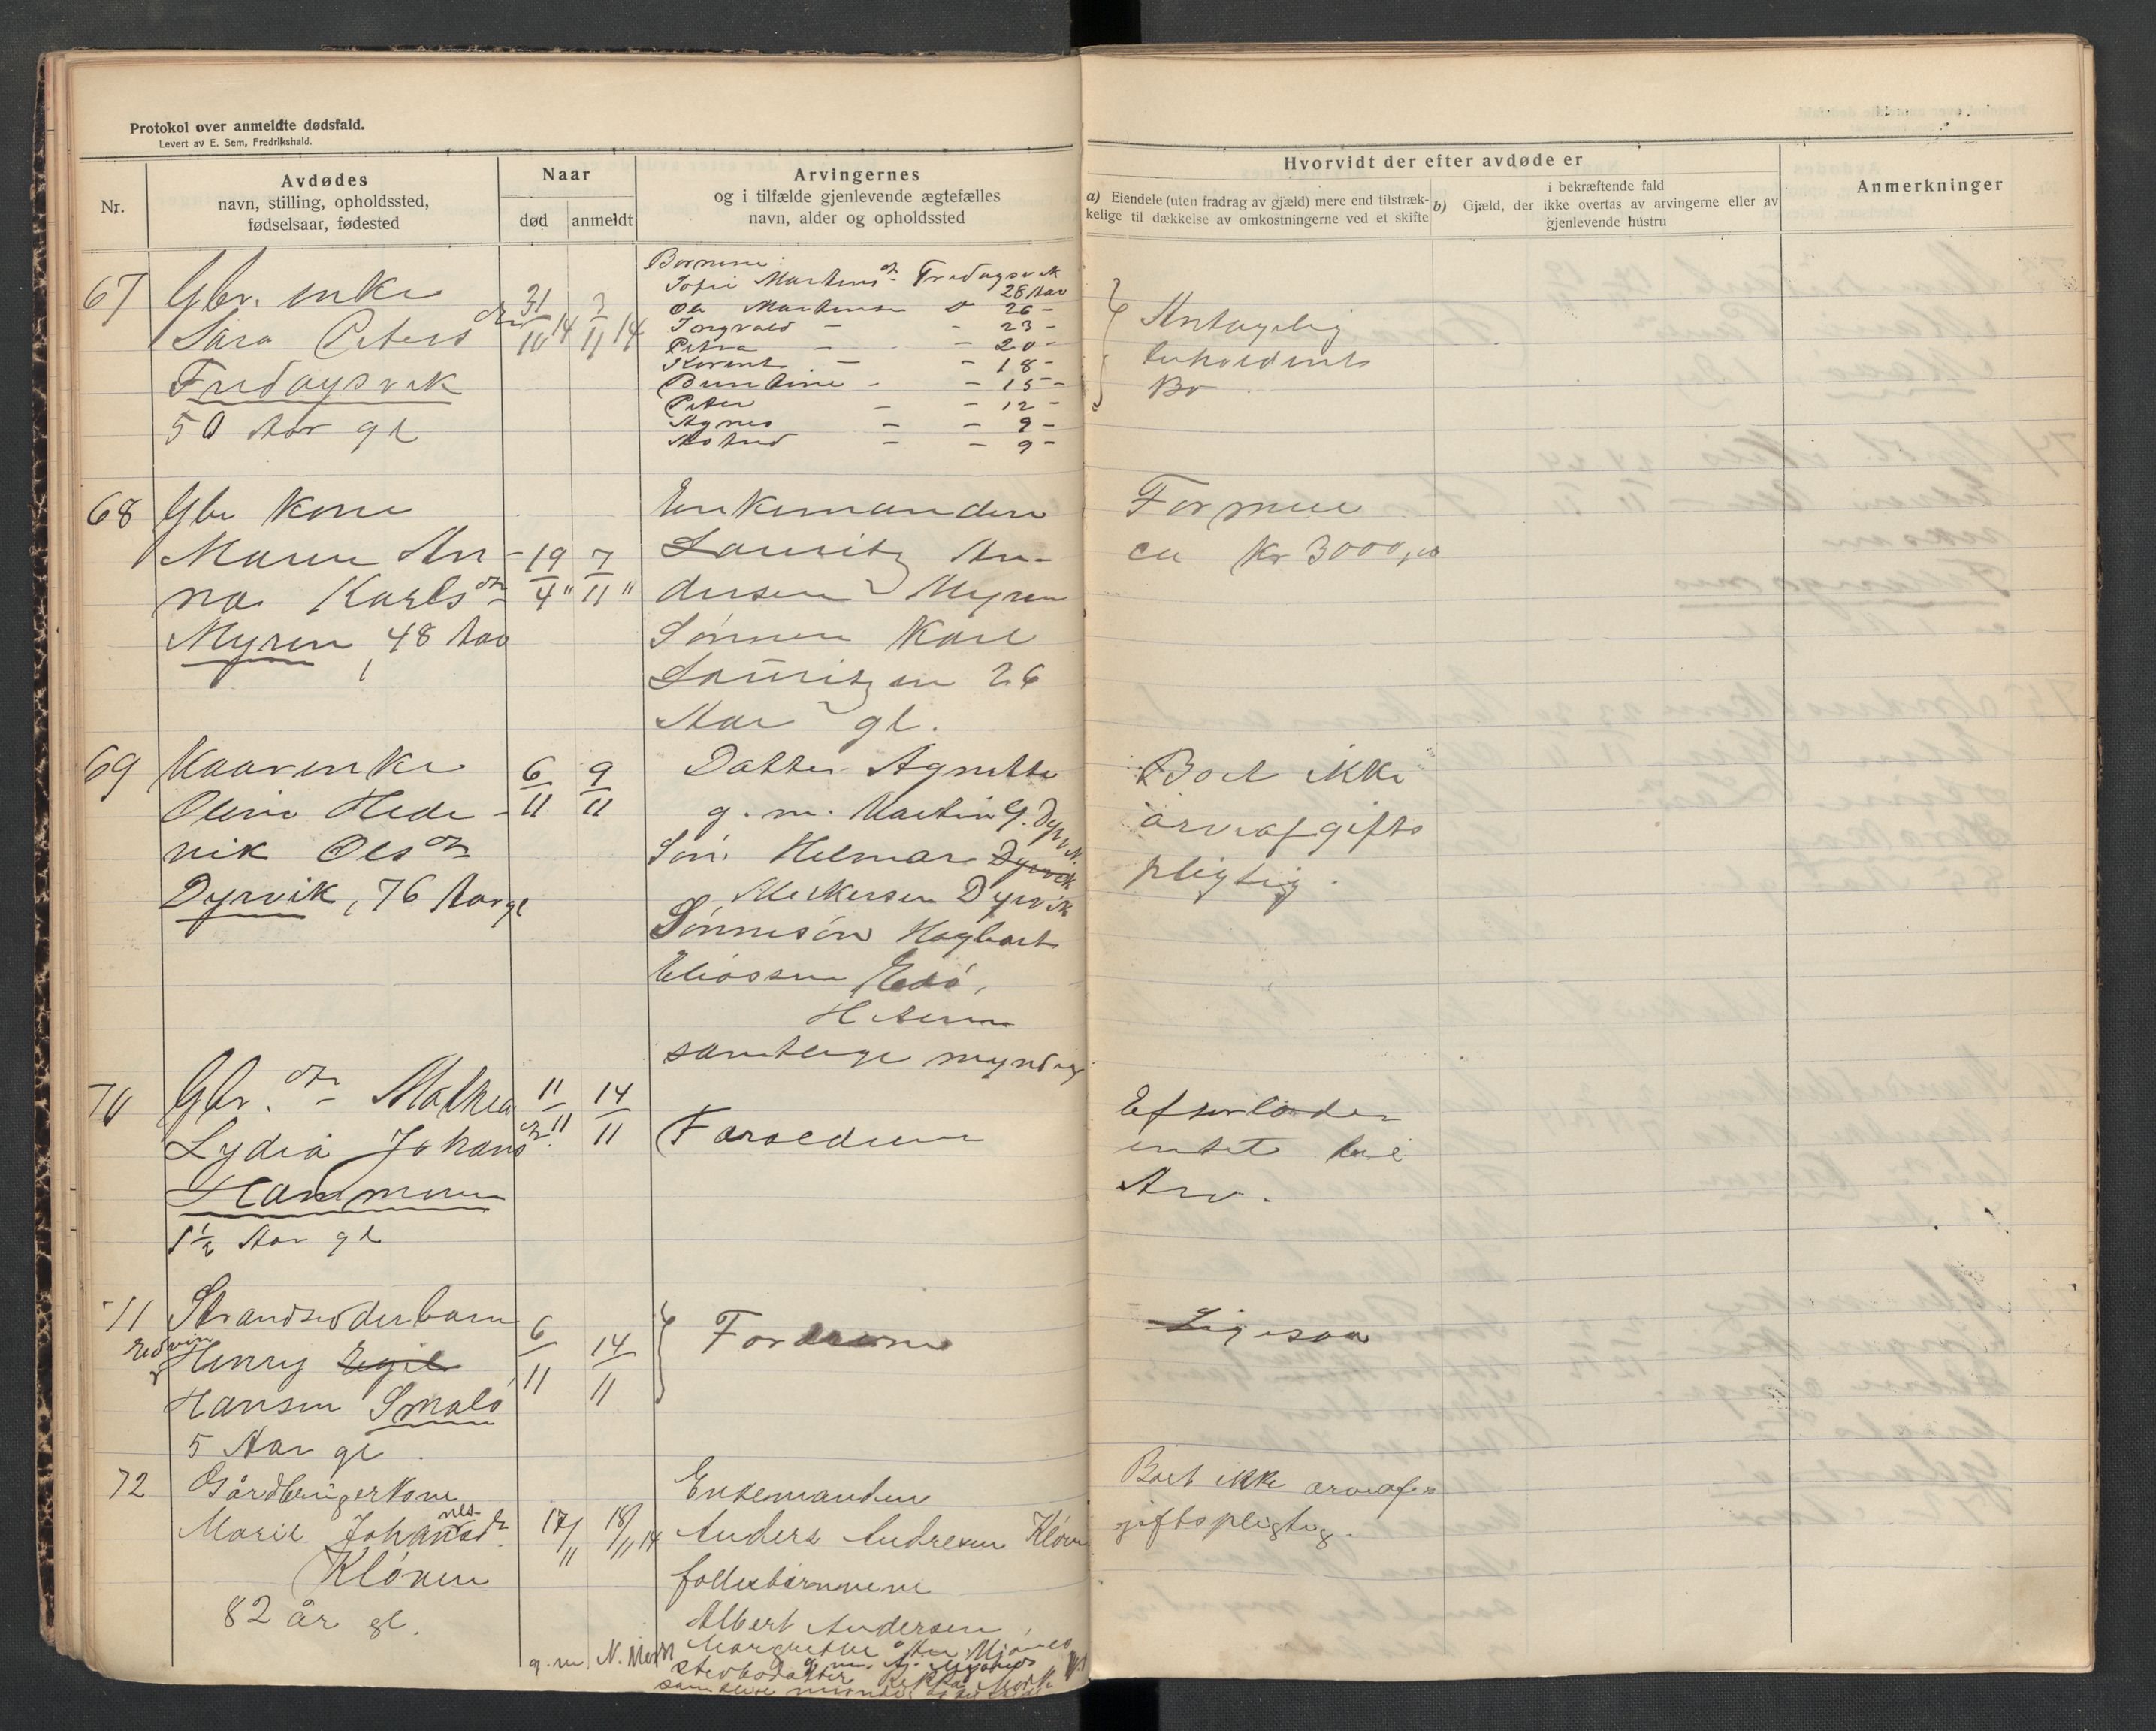 Protokol over anmeldte dødsfald.
Levert av E. Sem, Fredrikshald.
Nr.
Avdødes
navn, stilling, opholdssted,
fødselsaar, fødested
Naar
død
anmeldt
Arvingernes
og i tilfælde gjenlevende ægtefælles
navn, alder og opholdssted
Hvorvidt der efter avdøde er
a) Eiendele (uten fradrag av gjæld) mere end tilstræk-
kelige til dækkelse av omkostningerne ved et skifte
b) Gjæld, der
i bekræftende fald
ikke overtas av arvingerne eller av
gjenlevende hustru
Anmerkninger
67
Gbr. enke
Sara Petersdtr
Fredagsvik
50 Aar gl
31/10 14
3/11 14
Børnene:
Sofie Martensdtr Fredagsvik
28 Aar
Ole Martensen do 26 -
Ingvald - - 23 -
Petra - - 20 -
- - 18 -
- - 15 -
Peter - - 12 -
Agnes - - 9 -
Astrid - - 9 -
Antagelig
beholdent
Bo
68
Gbr kone
Maren An-
na Karlsdtr
Myren, 48 Aar
19/4 "
7/11 "
Enkemanden
Lauritz An-
dersen Myren
Sønnen Karl
Lauritzen 26
Aar gl.
Formue
ca Kr 3000,00
69
Kaarenke
Oline Hede-
vik Olsdtr
Dyrvik, 76 Aar gl
6/11
9/11
Datter Agnette
g. m. Martin G. Dyrvik.
Søn Hilmar Dyrvik
Alerksen Dyrvik
Sønnesøn Hagbart
Eliassen Edø,
Hiteren
samtlige myndig
Boet ikke
arveafgifts
pligtig.
70
Gbr. dtr Mathea
Lydia Johansdtr.
Hammeren
1½ Aar gl
11/11
14/11
Forældrene
Efterlader
intet til
Arv.
71
Strandsidderbarn
Edvin
Henry Egil
Hansen Smalø
5 Aar gl.
6/11
14/11
Forældrene
Ligesaa
72
Gårdbrugerkone
Marie Johansdtr.
nes-
Kløven
82 år gl.
17/11
18/11 14
Enkemanden
Anders Andresen Kløven
fællesbørnene
Albert Andersen,
g. m. N.
samtlige
Boet ikke arveaf-
giftspligtig.